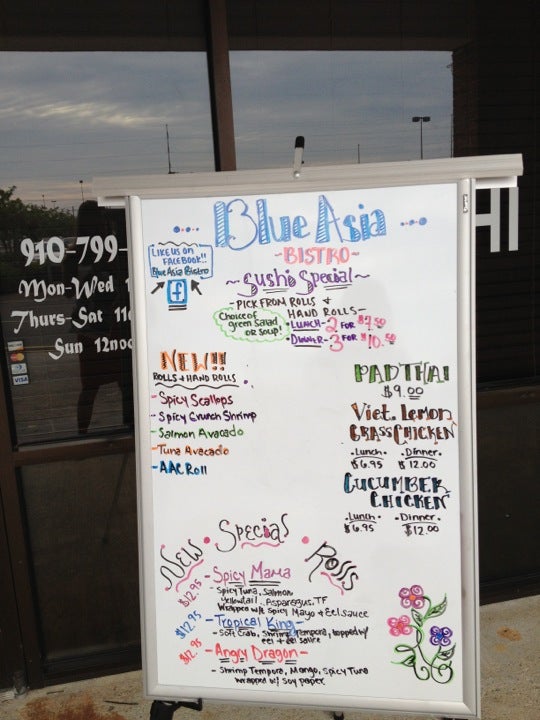 Blue Asia
-BISTRO-
LIKE US ON
FACEBOOK!!
Blue Asia Bistro
f
~Sushi Special~
-PICK FROM ROLLS &
HAND ROLLS-
Choice of
green Salad
or Soup!
• LUNCH - 2 FOR $7.50
• DINNER - 3 FOR $10.50
NEW!!
ROLLS & HAND ROLLS
-Spicy Scallops
-Spicy Crunch Shrimp
-Salmon Avacado
-Tuna Avacado
-AAC Roll
PADTHAI
$9.00
Viet. Lemon
GRASS CHICKEN
•Lunch• •Dinner•
$6.95 $12.00
CUCUMBER
CHICKEN
•Lunch• •Dinner•
$6.95 $12.00
NEW • Special • Rolls
$12.95 -Spicy Mama
- Spicy Tuna, Salmon
Yellowtail, Asparegus, TF
Wrapped w/ Spicy Mayo & Eel sauce
$12.95 -Tropical King-
- Soft Crab, Shrimp Tempora, topped w/
eel & eel sauce
$12.95 -Angry Dragon-
- Shrimp Tempora, Mango, Spicy Tuna
Wrapped w/ Soy paper
910-799-
Mon-Wed 1
Thurs-Sat 11
Sun 12noo
MasterCard
VISA
HI